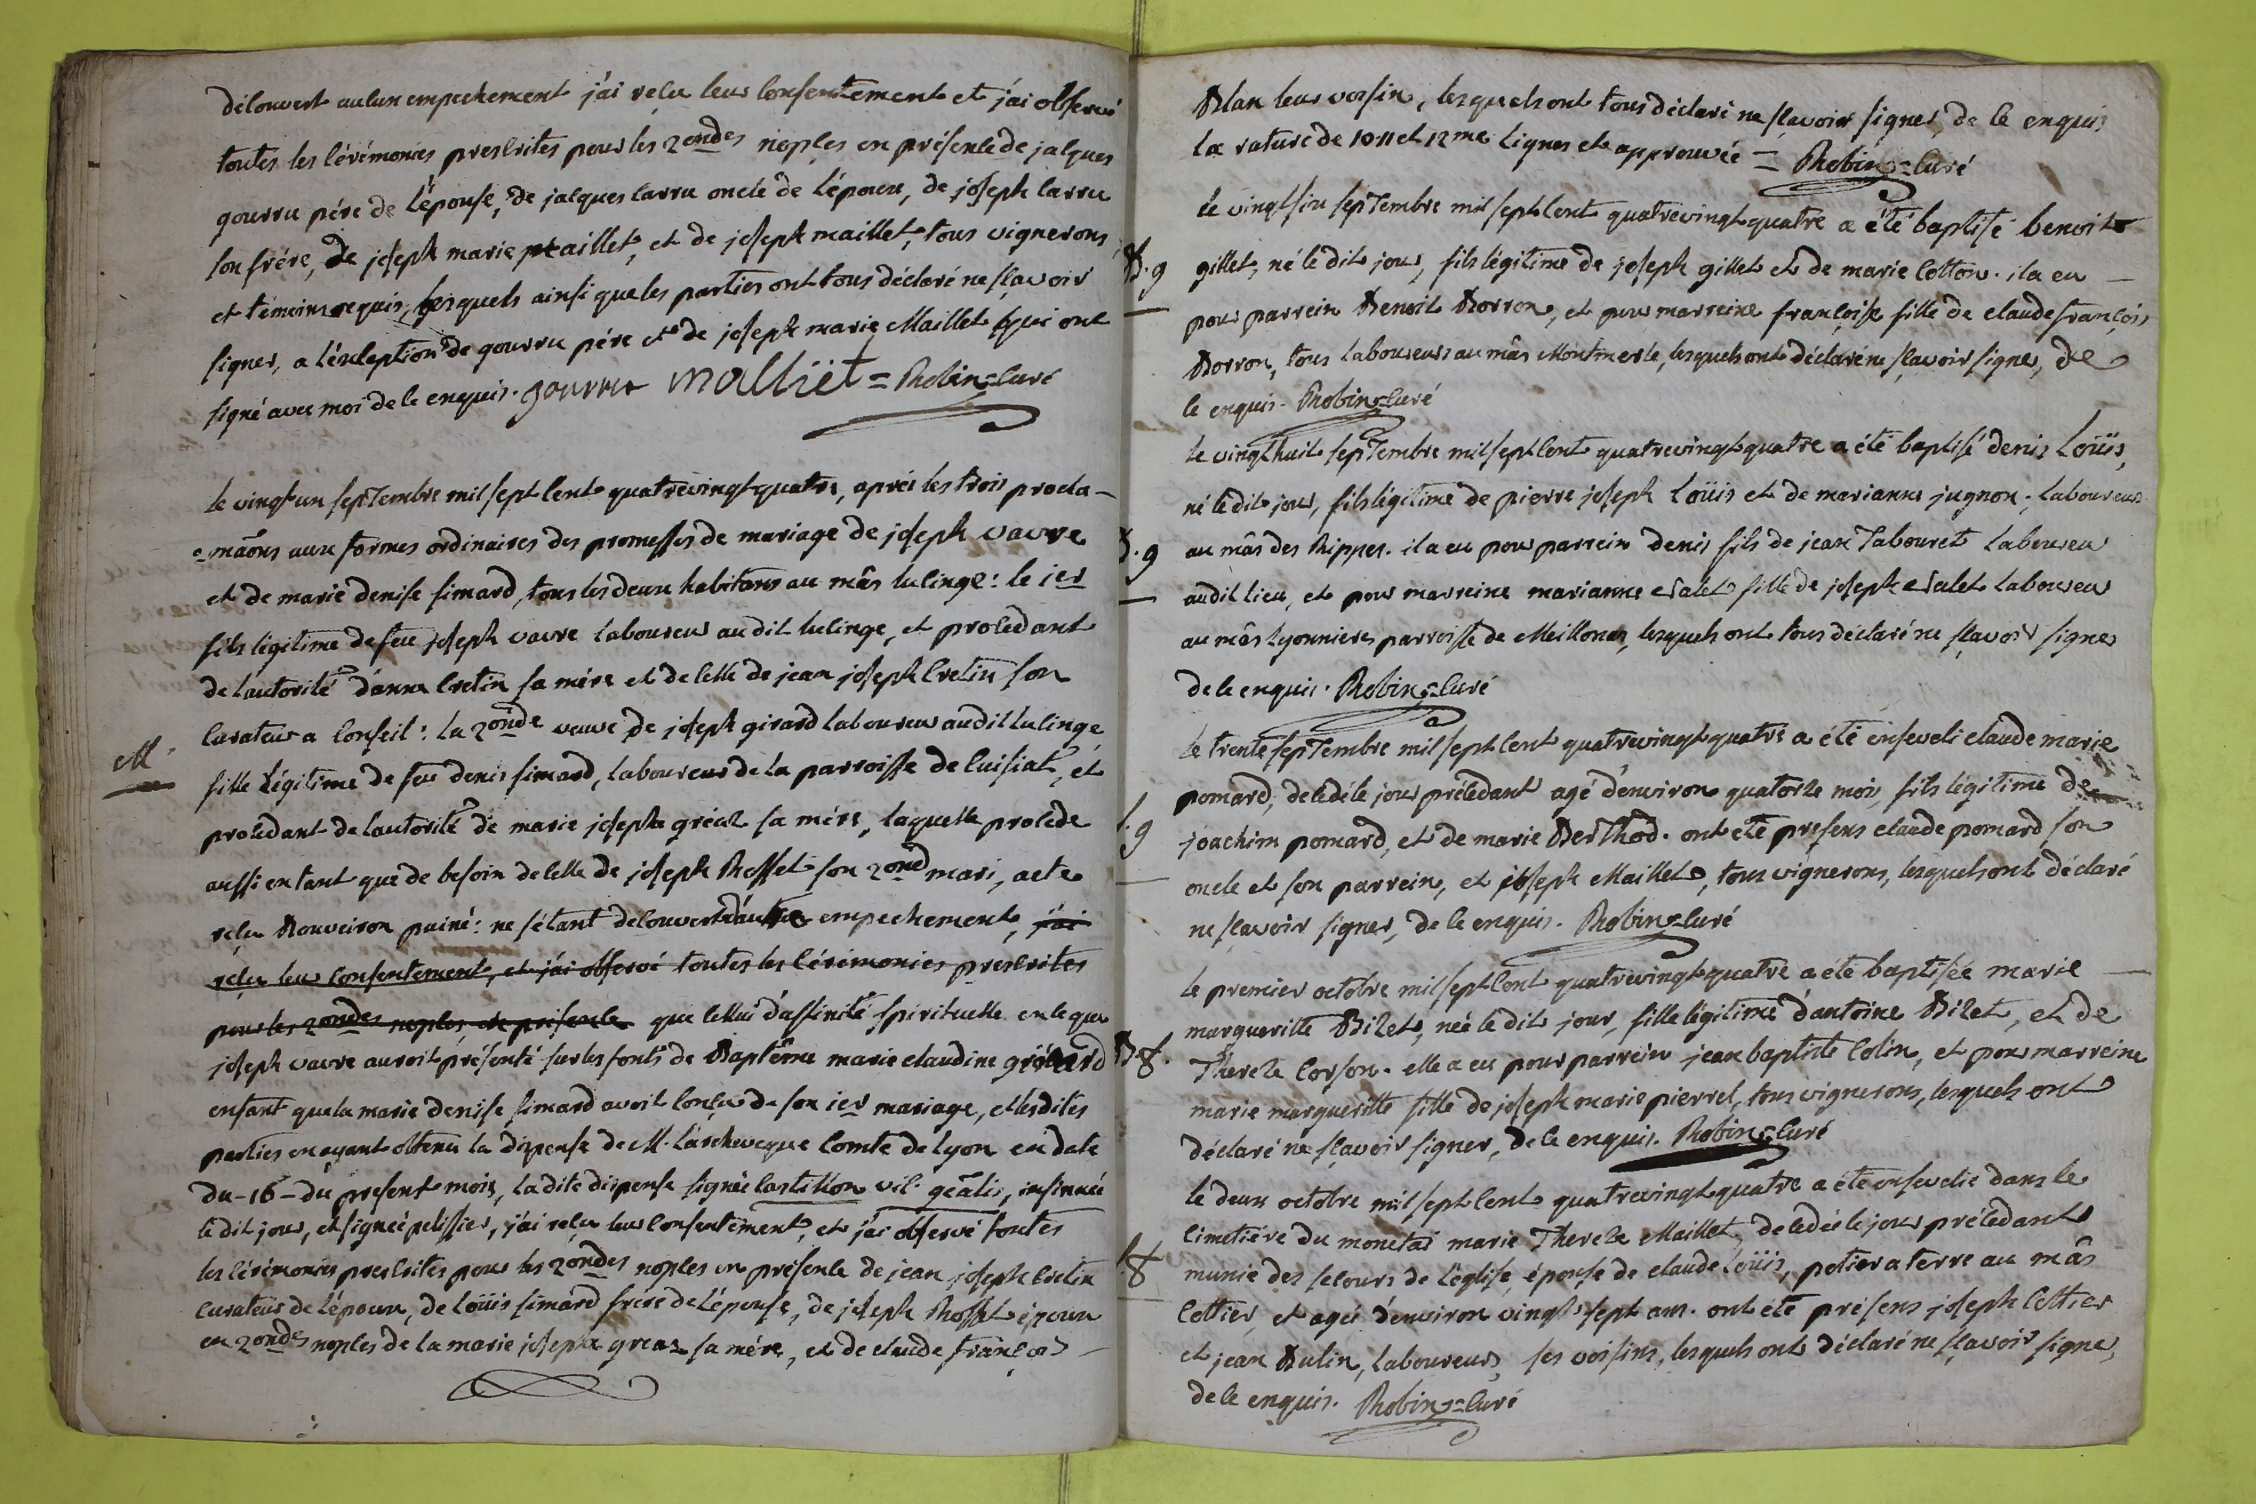 découvert aucun empechement j'ai reçu leur consentement et j'ai observé
toutes les cérémonies prescrites pour les 2ondes nopces en présence de jacques
gourru pére de l'épouse, de jacques carru oncle de l'époux, de joseph carru
son frére, de joseph marie maillet, et de joseph maillet, tous vignerons
et témoins requis, lesquels ainsi que les parties ont tous déclaré ne sçavoir
signer, a l'exception de gourru pére et de joseph marie Maillet qui ont
signé avec moi de ce enquis. gourru malliet = Robin=curé
le vingt un septembre mil sept cent quatrevingt quatre, aprés les trois procla-
-maons aux formes ordinaires des promesses de mariage de joseph vavre
et de marie denise simard, tous les deux habitans au mâs lulinge : le ier
fils légitime de feu joseph vavre laboureur audit lulinge, et procédant
de l'autorité d'anne cretin sa mére et de celle de jean joseph cretin son
curateur a conseil : la 2onde veuve de joseph girard laboureur audit lulinge
M.
fille légitime de feu denis simard, laboureur de la parroisse de cuisiat, et
procédant de l'autorité de marie josephe gréaz sa mére, laquelle procéde
aussi en tant que de besoin de celle de joseph Rosset son 2ond mari, acte
reçu Rouveiron painé : ne s'étant découvert d'autre empechement, j'ai
reçu leur consentement, et j'ai observé toutes les cérémonies prescrites
pour les 2ondes nopces, en présence que celui d'affinité spirituelle en ce que
joseph vavre auroit présenté sur les fonts de Baptême marie claudine girard
enfant que la marie denise simard avoit conçu de son ier mariage, et lesdites
parties en ayant obtenu la dispense de M. l'archeveque comte de lyon en date
du -16- du présent mois, ladite dispense signée castillon vic. gealis, insinuée
le dit jour, et signée pelissier, j'ai reçu leur consentement, et j'ai observé toutes
les cérémonies prescrites pour les 2ondes nopces en présence de jean joseph cretin
curateur de l'époux, de loüis simard frére de l'épouse, de joseph Rosset époux
en 2ondes nopces de la marie josephe greaz sa mére, et de claude françois
Blan leur voisin, lesquels ont tous déclaré ne sçavoir signer, de ce enquis
la rature de 10 11 et 12me lignes et approuvée = Robin=curé
le vingt six septembre mil sept cent quatrevingt quatre a été baptisé benoit
B.9 gillet, né le dit jour, fils légitime de joseph gillet et de marie cotton. il a eu
pour parrein Benoit Borron, et pour marreine françoise fille de claude françois
Borron, tous laboureurs au mâs Montmerle, lesquels ont déclaré ne sçavoir signer, de
ce enquis. Robin=curé
le vingt huit septembre mil sept cent quatrevingt quatre a été baptisé denis Loüis,
né le dit jour, fils légitime de pierre joseph Loüis et de marianne jugnon, laboureur
B.9 au mâs des Rippes. il a eu pour parrein denis fils de jean Tabouret laboureur
audit lieu, et pour marreine marianne salet fille de joseph salet laboureur
au mâs lyonnieres parroisse de Meillonas, lesquels ont tous déclaré ne sçavoir signer
de ce enquis. Robin=curé
le trente septembre mil sept cent quatrevingt quatre a été enseveli claude marie
pomard, décédé le jour précédant agé d'environ quatorze mois, fils légitime de
S.9 joachim pomard, et de marie Berthod. ont été présens claude pomard, son
oncle et son parrein, et joseph Maillet, tous vignerons, lesquels ont déclaré
ne sçavoir signer, de ce enquis. Robin=curé
le premier octobre mil sept cent quatrevingt quatre a été baptisée marie
margueritte Bizet, née le dit jour, fille légitime d'antoine Bizet, et de
B.8. Thereze corson. elle a eu pour parrein jean baptiste colin, et pour marreine
marie margueritte fille de joseph marie pierrel, tous vignerons, lesquels ont
déclaré ne sçavoir signer, de ce enquis. Robin=curé
le deux octobre mil sept cent quatrevingt quatre a été ensevelie dans le
cimetiére du monetai marie Thereze Maillet, décédée le jour précédant
S.8 munie des secours de l'église, épouse de claude Loüis, potier a terre au mâs
cottier, et agée d'environ vingt sept ans. ont été présens joseph cottier
et jean Bulin, laboureurs, ses voisins, lesquels ont déclaré ne sçavoir signer,
de ce enquis. Robin=curé